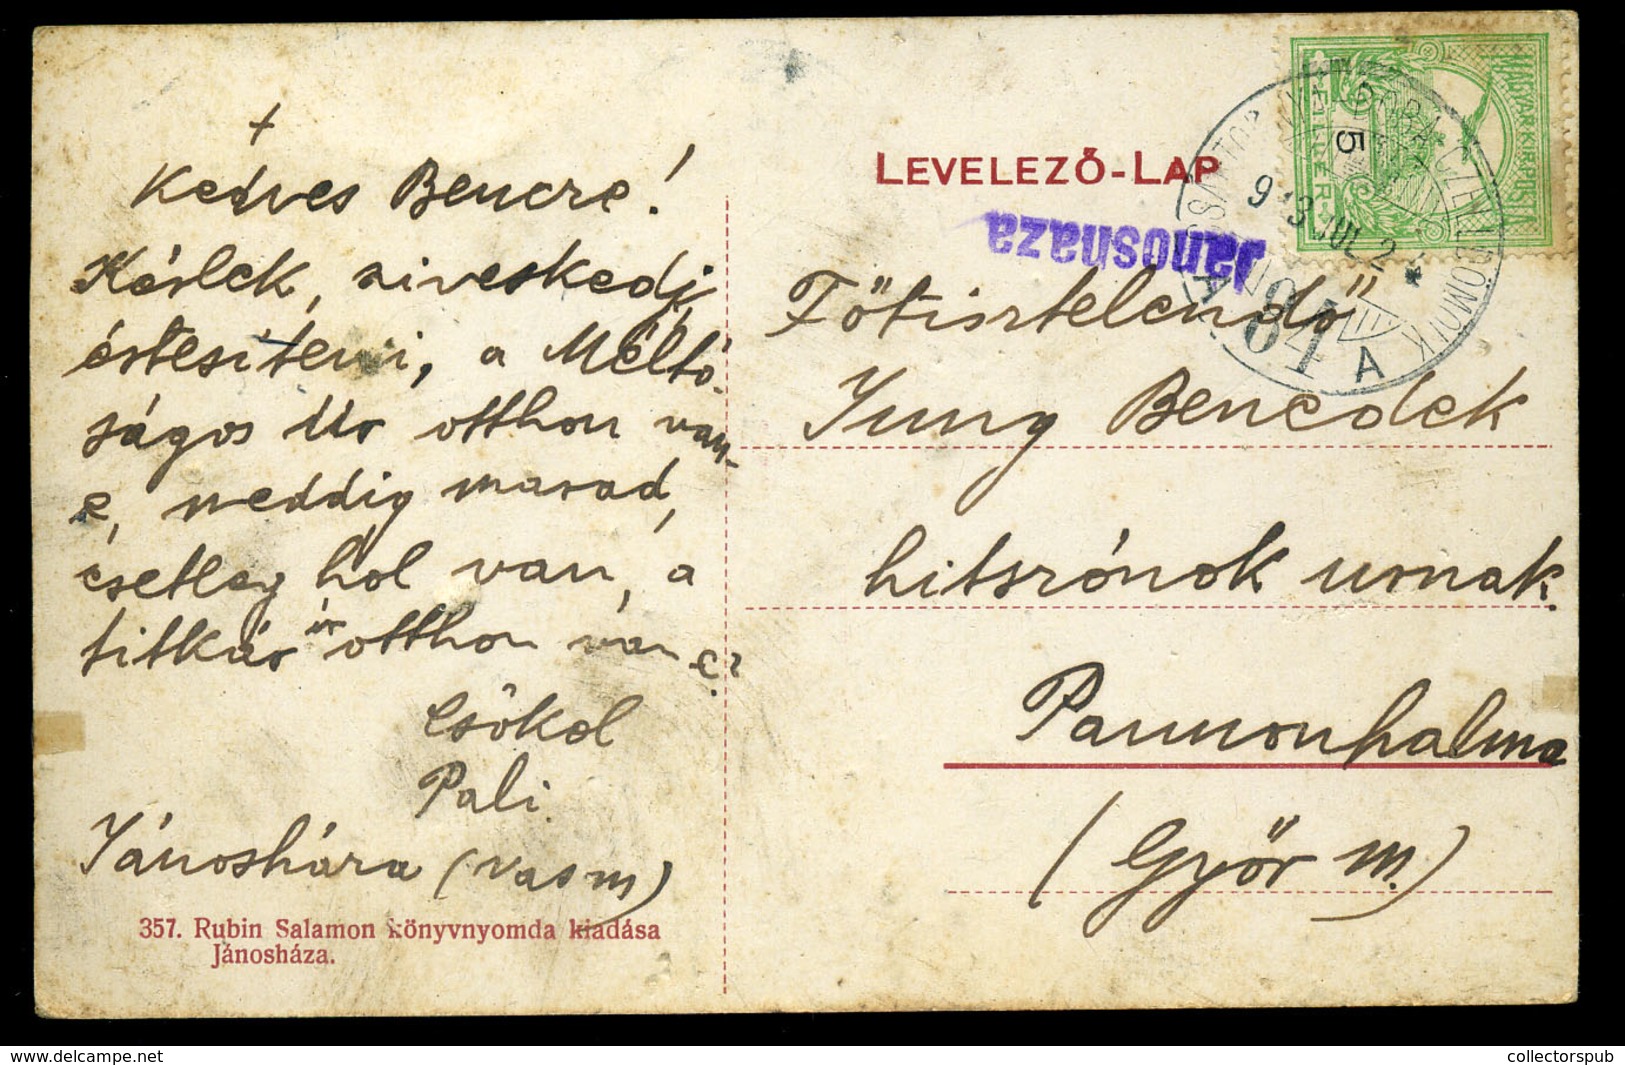 +
Kedves Bencze!
Kérlek, sziveskedj
értesíteni, a Méltó-
ságos Ur otthon van-
e, meddig marad,
esetleg hol van, a
titkár úr otthon van e?
Csókol
Pali.
Jánosháza (Vas m)
357. Rubin Salamon könyvnyomda kiadása
Jánosháza.
LEVELEZŐ-LAP
Jánosháza
MAGYAR KIR. POSTA
5
FILLÉR
CZELLDÖMÖLK
913 JUL 2
84
A
Főtisztelendő
Jung Benedek
hitszónok urnak.
Pannonhalma
(Győr m.)
www.delcampe.net
collectorspub